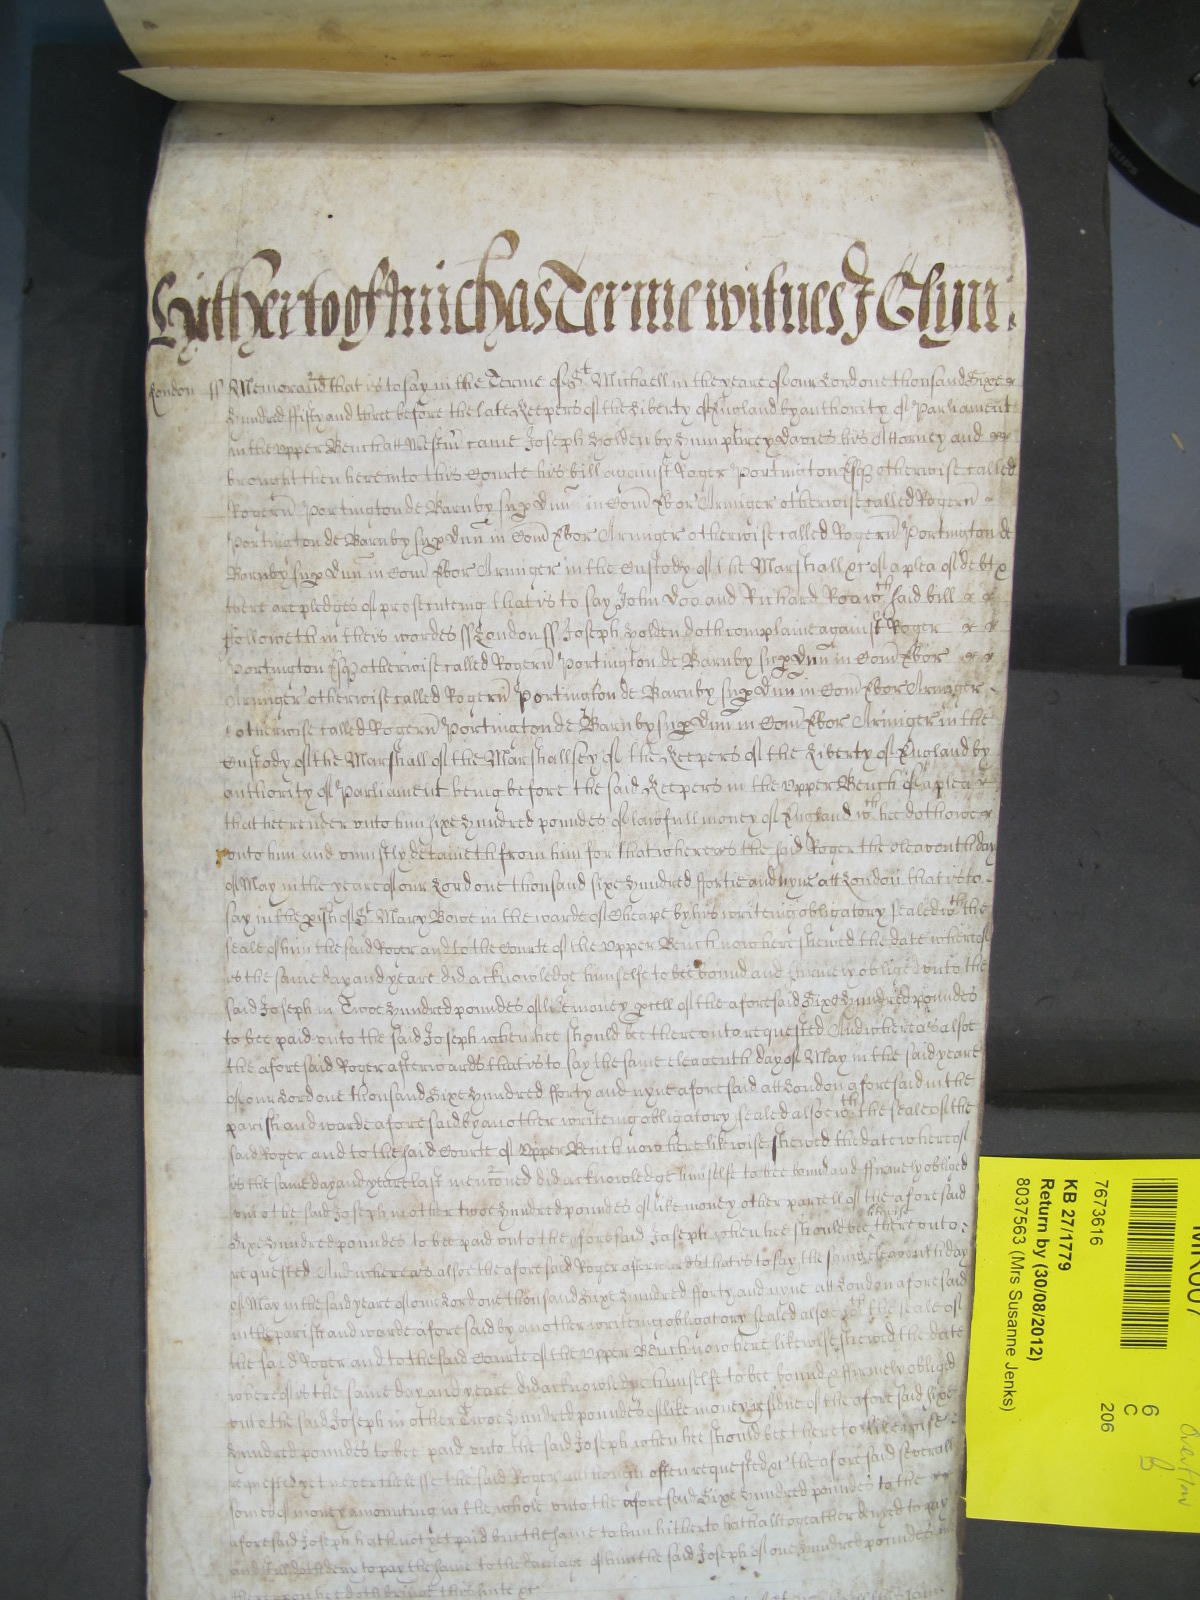 Hitherto of Michas Terme witnes J Glyn:
London ss Memorand that is to say in the Terme of St Michaell in the yeare of our Lord one thousand Sixe
hundred ffifty and three before the late Keepers of the Liberty of England by authority of Parliament
in the upper Bench att Westm came Joseph Holden by Humphrey Davies his Attorney and
brought then here into this Courte his bill against Roger Portington Esq otherwise called
Rogeru Portington de Barnby sup Dun in Com Ebor Armiger otherwise called Rogeru
Portington de Barnby sup Dun in Com Ebor Armiger otherwise called Rogeru Portington de
Barnby sup Dun in Com Ebor Armiger in the Custody of the Marshall &c of a plea of debt
there are pledges of prosecuteing that is to say John Doo and Richard Roo wch said bill
followeth in theis wordes ss London ss Joseph Holden doth complaine against Roger
Portington Esq otherwise called Rogeru Portington de Barnby sup Dun in Com Ebor
Armiger otherwise called Rogeru Portington de Barnby sup Dun in Com Ebor Armiger
otherwise called Rogeru Portington de Barnby sup Dun in Com Ebor Armiger in the
Custody of the Marshall of the Marshallsey of the Keepers of the Liberty of England by
authority of Parliament being before the said Keepers in the upper Bench of a plea
that hee render unto him sixe hundred poundes of lawfull money of England wch hee doth owe
unto him and uniustly detaineth from him for that whereas the said Roger the eleaventh day
of May in the yeare of our Lord one thousand sixe hundred fortie and nyne att London that is to
say in the pish of St Mary Bowe in the warde of Cheape by his writeing obligatory sealed wth the
seale of him the said Roger and to the Courte of the upper Bench now here shewed the date whereof
is the same day and yeare did acknowledge himselfe to bee bound and firmely obliged unto the
said Joseph in Twoe hundred poundes of like money pcell of the aforesaid Sixe hundred poundes
to bee paid unto the said Joseph when hee should bee thereunto requested And whereas alsoe
the aforesaid Roger afterwards that is to say the same eleaventh day of May in the said yeare
of our Lord one thousand Sixe hundred fforty and nyne aforesaid att London aforesaid in the
parish and warde aforesaid by another writeing obligatory sealed alsoe wth the seale of the
said Roger and to the said Courte of upper Bench now here likewise shewed the date whereof
is the same day and yeare last mentoned did acknowledge himselfe to bee bound and ffirmely obliged
unto the said Joseph in other twoe hundred poundes of like money other parcell of the aforesaid
Sixe hundred poundes to bee paid unto the aforesaid Joseph when hee should bee likewise thereunto
requested And whereas alsoe the aforesaid Roger afterwards that is to say the same eleaventh day
of May in the said yeare of our Lord one thousand Sixe hundred fforty and nyne att London aforesaid
in the parish and warde aforesaid by another writeing obligatory sealed alsoe wth the seale of
the said Roger and to the said Courte of the upper Bench now here likewise shewed the date
whereof is the same day and yeare did acknowledge himselfe to bee bound & ffirmely obliged
unto the said Joseph in other Twoe hundred poundes of like money residue of the aforesaid sixe
hundred poundes to bee paid unto the said Joseph when hee should bee thereto likewise
requested yet neverthelesse the said Roger although often requested &c the aforesaid severall
somes of money amounting in the whole unto the aforesaid Sixe hundred poundes to the
aforesaid Joseph hath not yet paid but the same to him hitherto hath altogeather denyed to pay
and still doth deny to pay the same to the damage of him the said Joseph of one hundred poundes
thereupon hee doth bring this suite &c
PHILIPS
7673616
KB 27/1779
Return by (30/08/2012)
8037563 (Mrs Susanne Jenks)
6
C
206